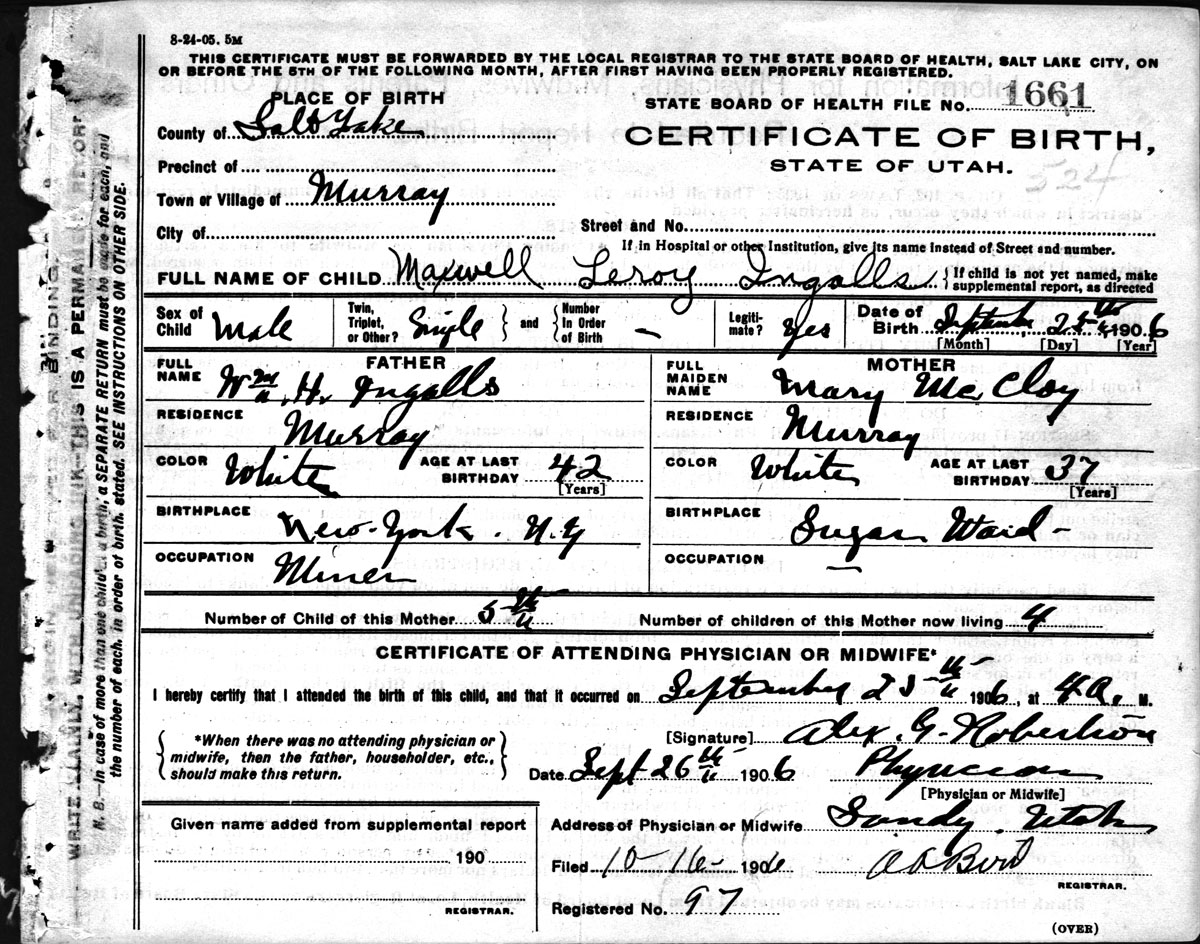 8-24-05. 5M
THIS CERTIFICATE MUST BE FORWARDED BY THE LOCAL REGISTRAR TO THE STATE BOARD OF HEALTH, SALT LAKE CITY, ON
OR BEFORE THE 5TH OF THE FOLLOWING MONTH, AFTER FIRST HAVING BEEN PROPERLY REGISTERED.
PLACE OF BIRTH
STATE BOARD OF HEALTH FILE NO. 1661
County of Salt Lake
CERTIFICATE OF BIRTH,
STATE OF UTAH.
524
Precinct of
Town or Village of Murray
City of
Street and No.
If in Hospital or other Institution, give its name instead of Street and number.
FULL NAME OF CHILD Maxwell Leroy Ingalls { If child is not yet named, make supplemental report, as directed
Sex of Child Male Twin, Triplet, or Other? Single } and { Number In Order of Birth – Legiti-mate? Yes Date of Birth September 25th 1906
[Month] [Day] [Year]
FATHER
FULL NAME Wm. H. Ingalls
RESIDENCE Murray
COLOR White AGE AT LAST BIRTHDAY 42
[Years]
BIRTHPLACE New-York. N.Y
OCCUPATION Miner
MOTHER
FULL MAIDEN NAME Mary McCloy
RESIDENCE Murray
COLOR White AGE AT LAST BIRTHDAY 37
[Years]
BIRTHPLACE Sugar Ward
OCCUPATION —
Number of Child of this Mother 5th Number of children of this Mother now living 4
CERTIFICATE OF ATTENDING PHYSICIAN OR MIDWIFE*
I hereby certify that I attended the birth of this child, and that it occurred on September 25th 1906, at 4 A. M.
{ *When there was no attending physician or
midwife, then the father, householder, etc.,
should make this return. }
[Signature] Alex. G. Robertson
Date Sept 26th 1906 Physician
[Physician or Midwife]
Given name added from supplemental report
190
REGISTRAR.
Address of Physician or Midwife Sandy. Utah
Filed 10-16-1906
REGISTRAR.
Registered No. 97
(OVER)
WRITE PLAINLY, WITH UNFADING INK—THIS IS A PERMANENT RECORD
N. B.—In case of more than one child at a birth, a SEPARATE RETURN must be made for each, and
the number of each, in order of birth, stated. SEE INSTRUCTIONS ON OTHER SIDE.